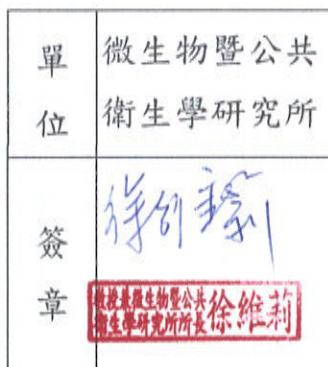 單位
微生物暨公共
衛生學研究所
簽章
徐維莉
教授兼微生物暨公共
衛生學研究所所長徐維莉